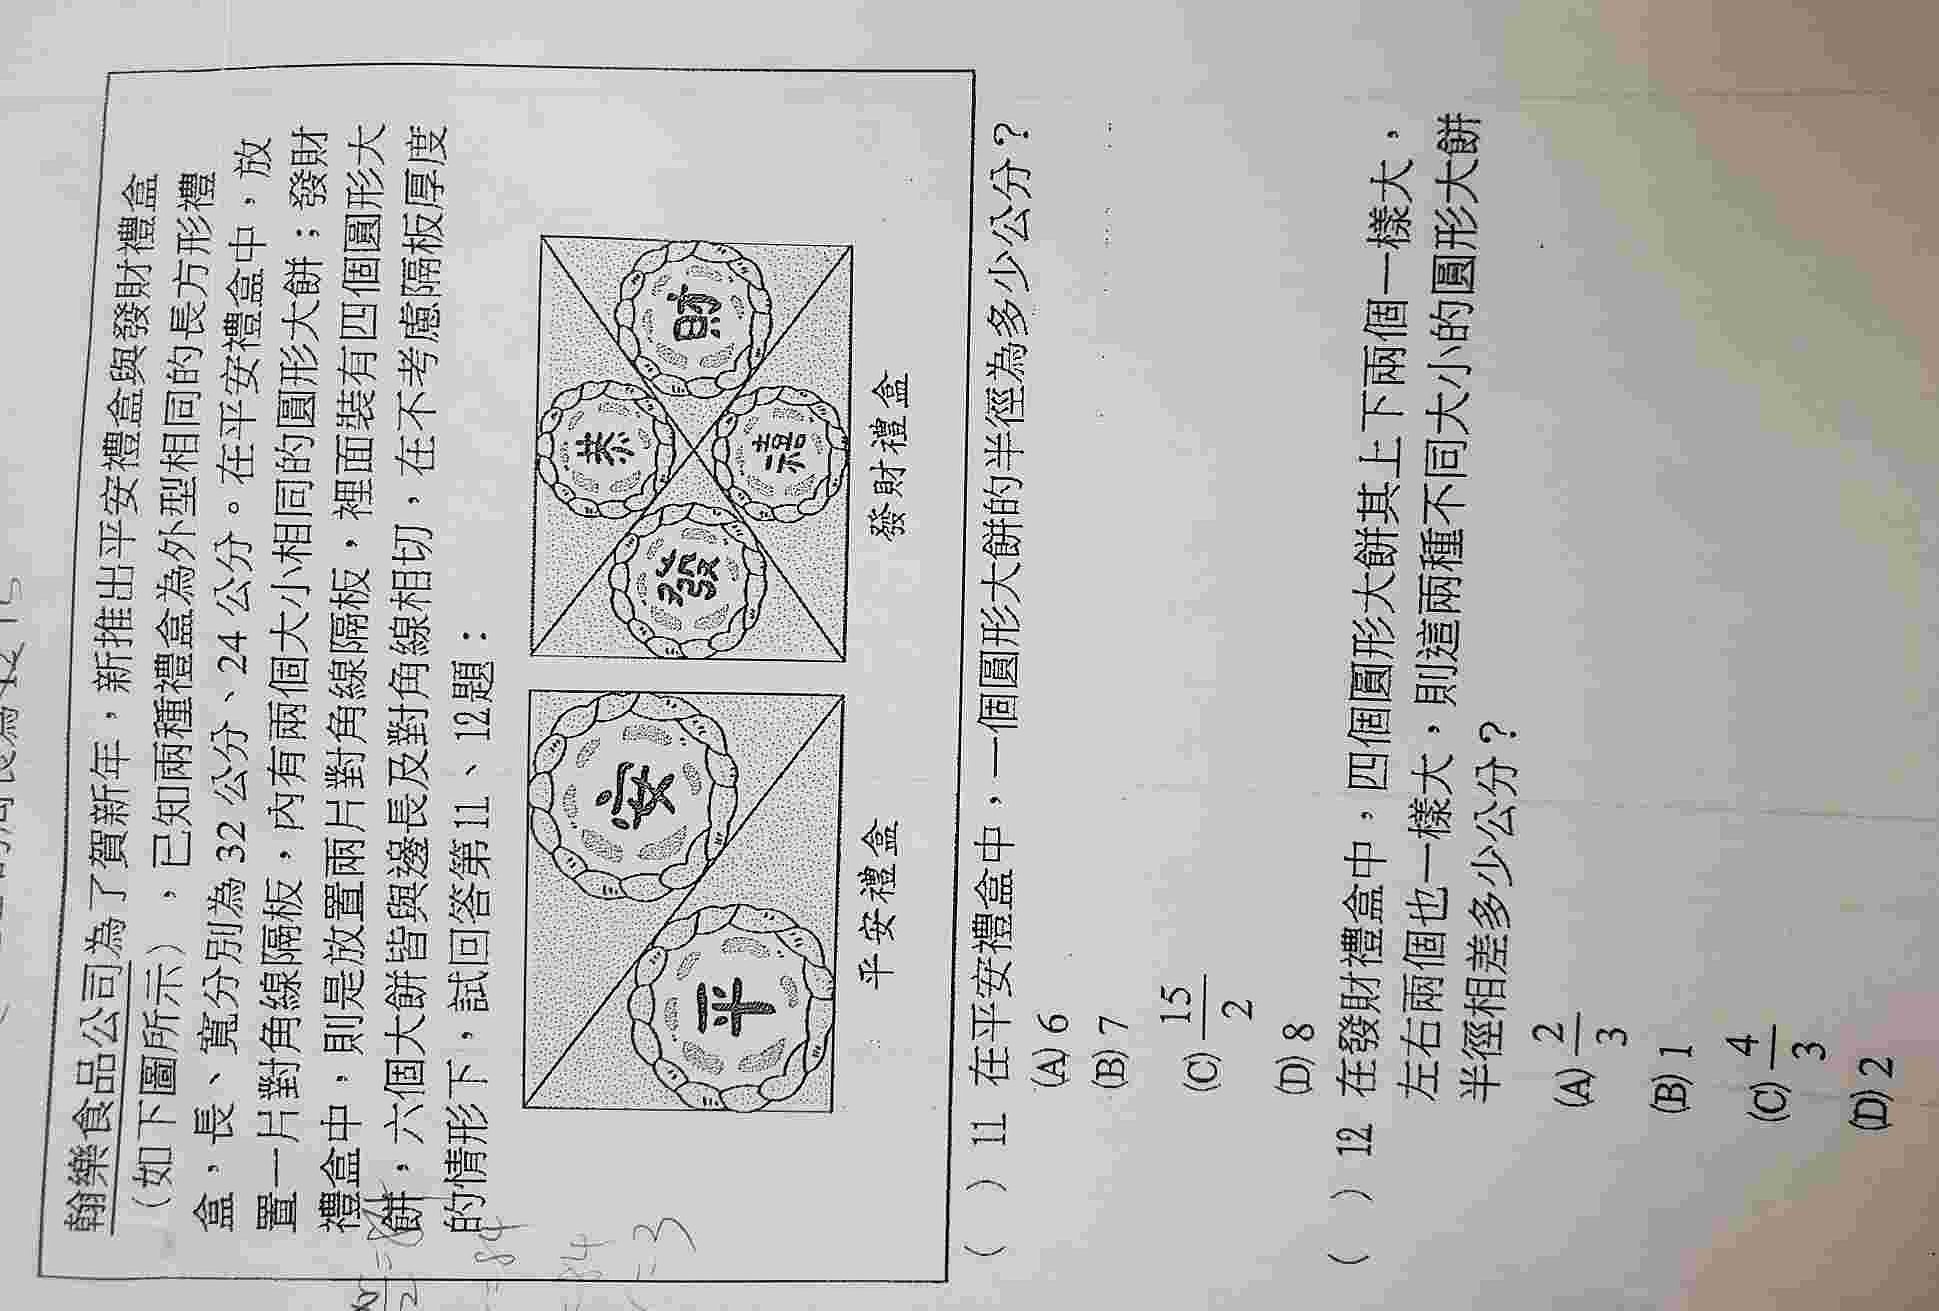 翰樂食品公司為了賀新年，新推出平安禮盒與發財禮盒
（如下圖所示），已知兩種禮盒為外型相同的長方形禮
盒，長、寬分別為 32 公分、24 公分。在平安禮盒中，放
置一片對角線隔板，內有兩個大小相同的圓形大餅；發財
禮盒中，則是放置兩片對角線隔板，裡面裝有四個圓形大
餅，六個大餅皆與邊長及對角線相切，在不考慮隔板厚度
的情形下，試回答第11、12題：
平
安
發
恭
禧
財
平安禮盒
發財禮盒
（ ）11 在平安禮盒中，一個圓形大餅的半徑為多少公分？
(A) 6
(B) 7
(C) 15/2
(D) 8
（ ）12 在發財禮盒中，四個圓形大餅其上下兩個一樣大，
左右兩個也一樣大，則這兩種不同大小的圓形大餅
半徑相差多少公分？
(A) 2/3
(B) 1
(C) 4/3
(D) 2
=84